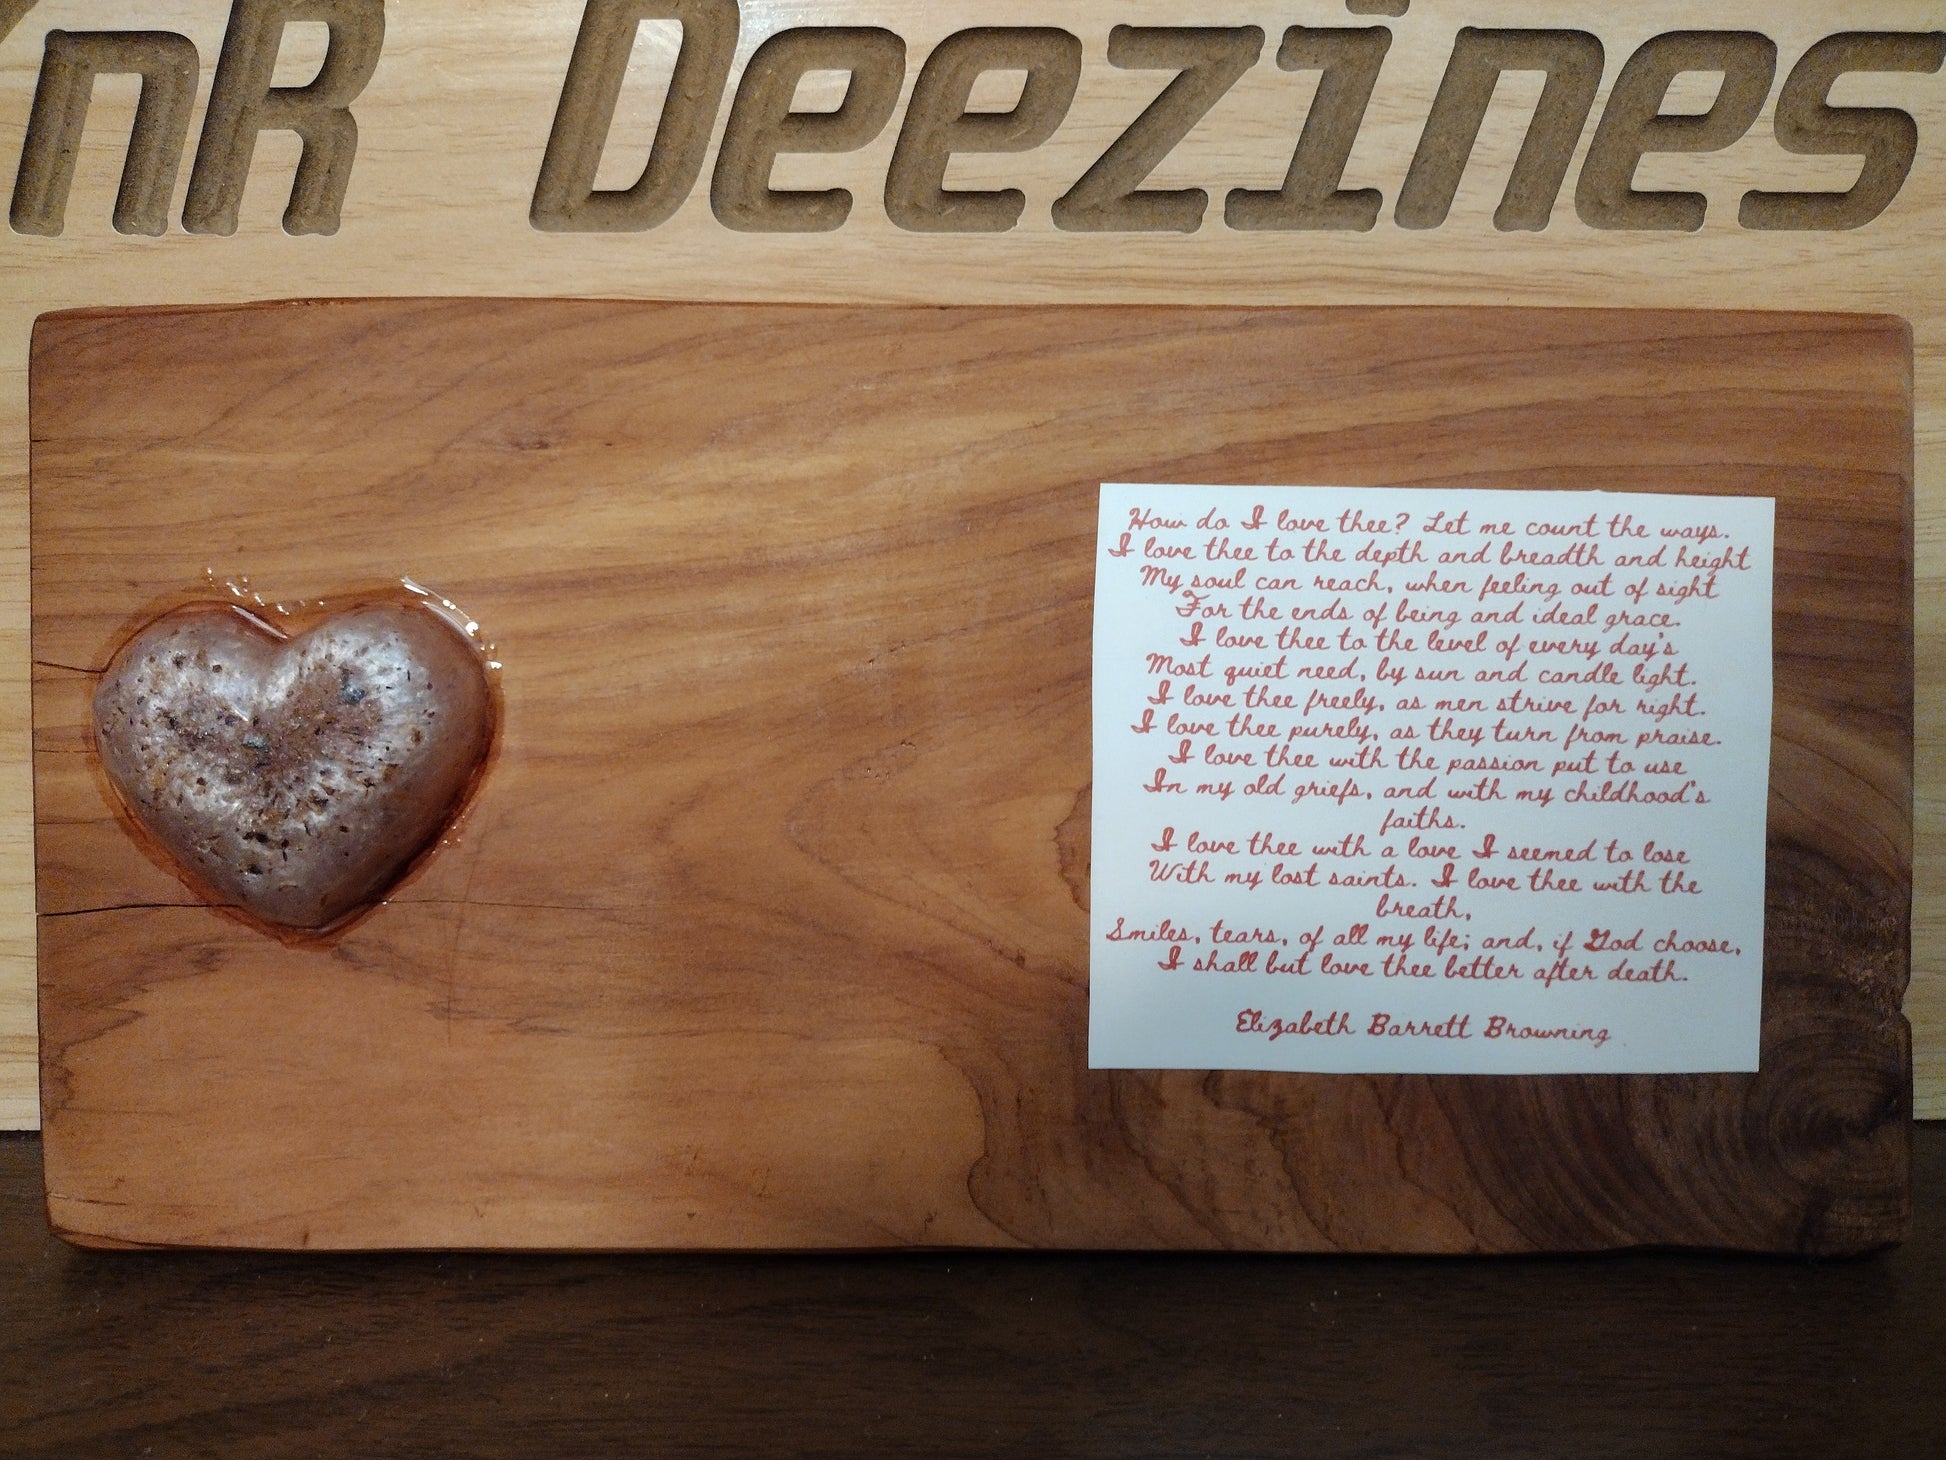 nR Deezines
How do I love thee? Let me count the ways.
I love thee to the depth and breadth and height
My soul can reach, when feeling out of sight
For the ends of being and ideal grace.
I love thee to the level of every day's
Most quiet need, by sun and candle light.
I love thee freely, as men strive for right.
I love thee purely, as they turn from praise.
I love thee with the passion put to use
In my old griefs, and with my childhood's
faiths.
I love thee with a love I seemed to lose
With my lost saints. I love thee with the
breath,
Smiles, tears, of all my life; and, if God choose,
I shall but love thee better after death.
Elizabeth Barrett Browning